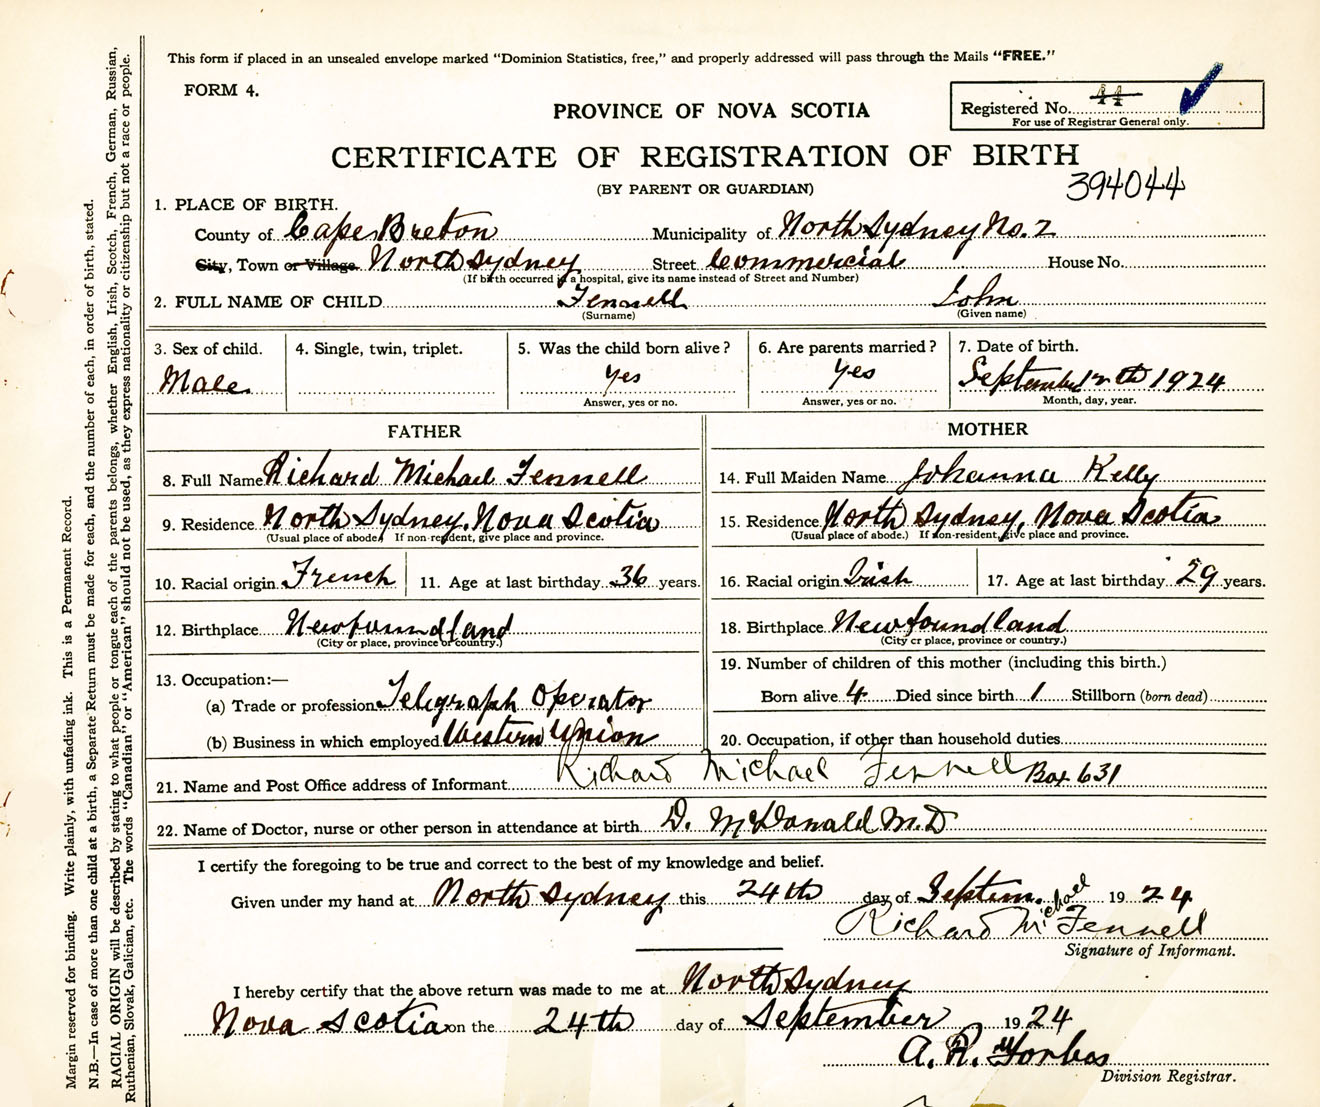 This form if placed in an unsealed envelope marked "Dominion Statistics, free," and properly addressed will pass through the Mails "FREE."
FORM 4.
PROVINCE OF NOVA SCOTIA
Registered No. 44
For use of Registrar General only.
CERTIFICATE OF REGISTRATION OF BIRTH
(BY PARENT OR GUARDIAN)
394044
1. PLACE OF BIRTH.
County of Cape Breton Municipality of North Sydney No. 2
City, Town or Village North Sydney Street Commercial House No.
(If birth occurred in a hospital, give its name instead of Street and Number)
2. FULL NAME OF CHILD Fennell John
(Surname) (Given name)
3. Sex of child. 4. Single, twin, triplet. 5. Was the child born alive? 6. Are parents married? 7. Date of birth.
Male Yes Yes September 12th 1924
Answer, yes or no. Answer, yes or no. Month, day, year.
FATHER MOTHER
8. Full Name Richard Michael Fennell 14. Full Maiden Name Johanna Kelly
9. Residence North Sydney, Nova Scotia 15. Residence North Sydney, Nova Scotia
(Usual place of abode) If non-resident, give place and province. (Usual place of abode.) If non-resident, give place and province.
10. Racial origin French 11. Age at last birthday 36 years. 16. Racial origin Irish 17. Age at last birthday 29 years.
12. Birthplace Newfoundland 18. Birthplace Newfoundland
(City or place, province or country.) (City or place, province or country.)
19. Number of children of this mother (including this birth.)
13. Occupation:—
(a) Trade or profession Telegraph Operator Born alive 4 Died since birth 1 Stillborn (born dead)
(b) Business in which employed Western Union 20. Occupation, if other than household duties
21. Name and Post Office address of Informant Richard Michael Fennell Box 631
22. Name of Doctor, nurse or other person in attendance at birth D. McDonald M.D
I certify the foregoing to be true and correct to the best of my knowledge and belief.
Given under my hand at North Sydney this 24th day of Septem. 1924
Richard Michael Fennell
Signature of Informant.
I hereby certify that the above return was made to me at North Sydney
Nova Scotia on the 24th day of September 1924
A. R. Forbes
Division Registrar.
Margin reserved for binding. Write plainly, with unfading ink. This is a Permanent Record.
N.B.—In case of more than one child at a birth, a Separate Return must be made for each, and the number of each, in order of birth, stated.
RACIAL ORIGIN will be described by stating to what people or tongue each of the parents belongs, whether English, Irish, Scotch, French, German, Russian,
Ruthenian, Slovak, Galician, etc. The words "Canadian" or "American" should not be used, as they express nationality or citizenship but not a race or people.